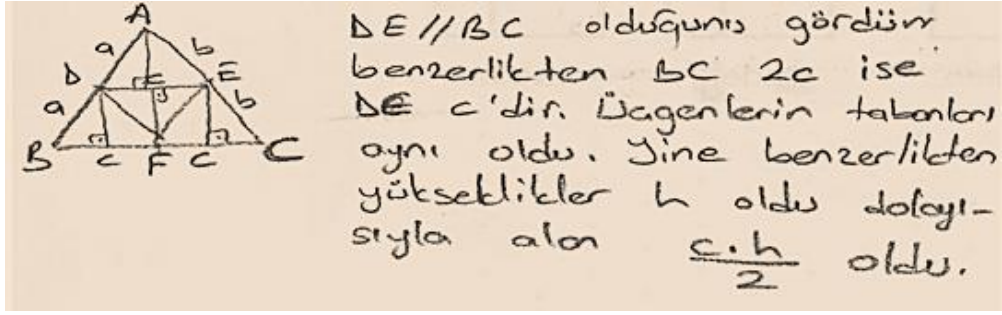 A
a b
D E
a b
B C F C C
DE//BC olduğunu gördüm
benzerlikten BC 2c ise
DE c'dir. Üçgenlerin tabanları
aynı oldu. Yine benzerlikten
yükseklikler h oldu dolayı-
sıyla alan c.h/2 oldu.